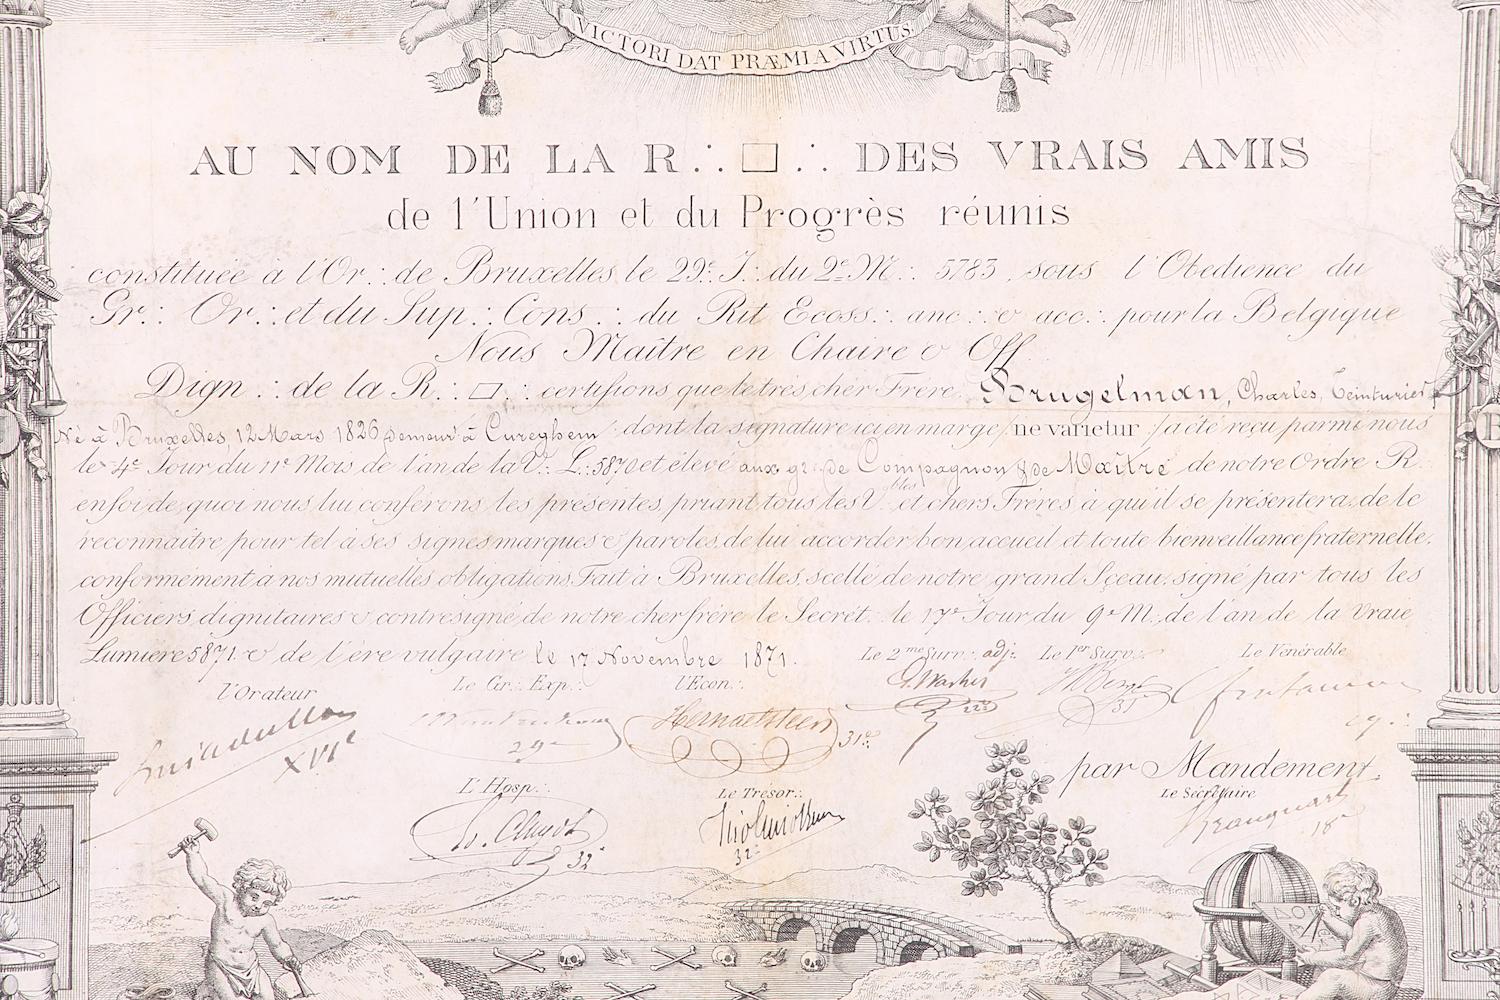 VICTORI DAT PRÆMIA VIRTUS.
AU NOM DE LA R∴ □ ∴ DES VRAIS AMIS
de l'Union et du Progrès réunis
constituée à l'Or∴ de Bruxelles le 29e J∴ du 2e M∴ 5783, sous l'Obedience du
Gr∴ Or∴ et du Sup∴ Cons∴ du Rit Ecoss∴ anc∴ & acc∴ pour la Belgique
Nous Maître en Chaire & Off
Dign∴ de la R∴ □∴ certifions que le très cher Frère Brugelman, Charles, Teinturier,
Né à Bruxelles, 12 Mars 1826, demeurt à Cureghem, dont la signature ici en marge /ne varietur/ a été reçu parmi nous
le 4e Jour du 11e Mois de l'an de la V∴ L∴ 5870 et élevé aux gr de Compagnon & de Maître de notre Ordre R∴
en foi de quoi nous lui conférons les présentes, priant tous les V bles et chers Frères à qui il se présentera, de le
reconnaître pour tel à ses signes marques & paroles, de lui accorder bon accueil et toute bienveillance fraternelle,
conformément à nos mutuelles obligations. Fait à Bruxelles, scellé de notre grand Sçeau, signé par tous les
Officiers dignitaires & contresigné de notre cher frère le Secrét∴ le 17e Jour du 9e M∴ de l'an de la Vraie
Lumière 5871 & de l'ère vulgaire le 17 Novembre 1871.
Le 2me Surv∴ adj∴ Le 1er Surv∴ Le Vénérable
l'Orateur Le Gr∴ Exp∴ l'Econ∴
XVIe 29e 31e 31 29∴
par Mandement,
L'Hosp∴ Le Trésor∴ Le Secrétaire
32e 32e 18e